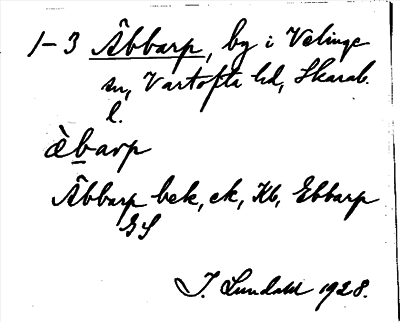 1-3 Åbbarp, by i Velinge
sn, Vartofta hd, Skarab.
l.
àbarp
Åbbarp bek, ek, Kb, Ebbarp
GS
I. Lundahl 1928.